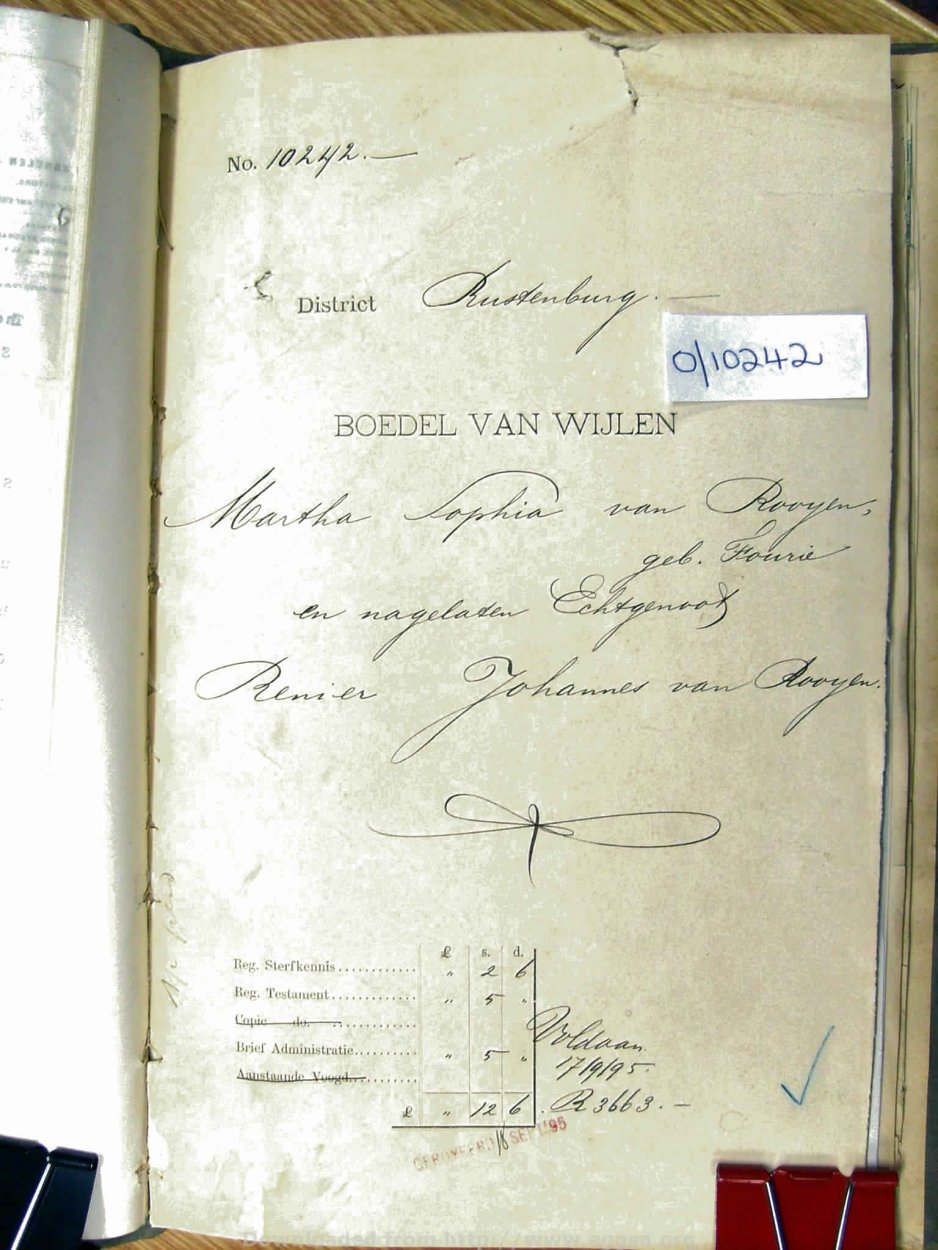 No. 10242. —
District Rustenburg. —
0/10242
BOEDEL VAN WIJLEN
Martha Sophia van Rooyen,
geb. Fourie
en nagelaten Echtgenoot
Renier Johannes van Rooyen.
£ s. d.
Reg. Sterfkennis............ „ 2 6
Reg. Testament............ „ 5 „
Copie do. ............
Brief Administratie.......... „ 5 „
Aanstaande Voogd..........
Voldaan
17/9/95.
£ „ 12 6. R 3663. —
SEPT 95
Downloaded from http://www.eggsa.org